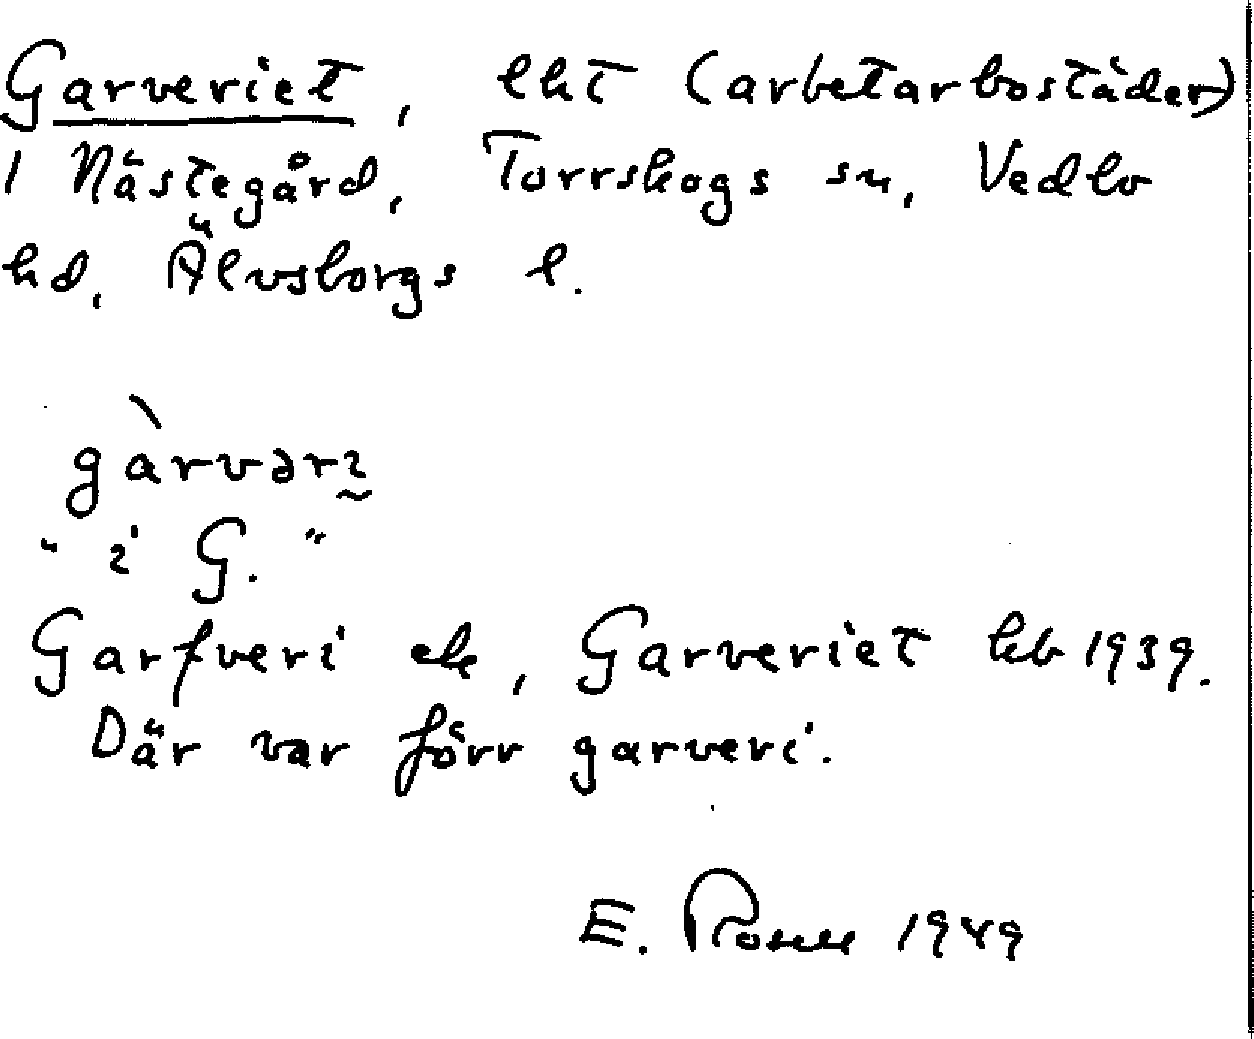 Garveriet, lht (arbetarbostäder)
i Nästegård, Torrskogs sn, Vedbo
hd, Älvsborgs l.
gàrvəri
"i G."
Garfveri ek, Garveriet hb 1939.
Där var förr garveri.
E. 1949